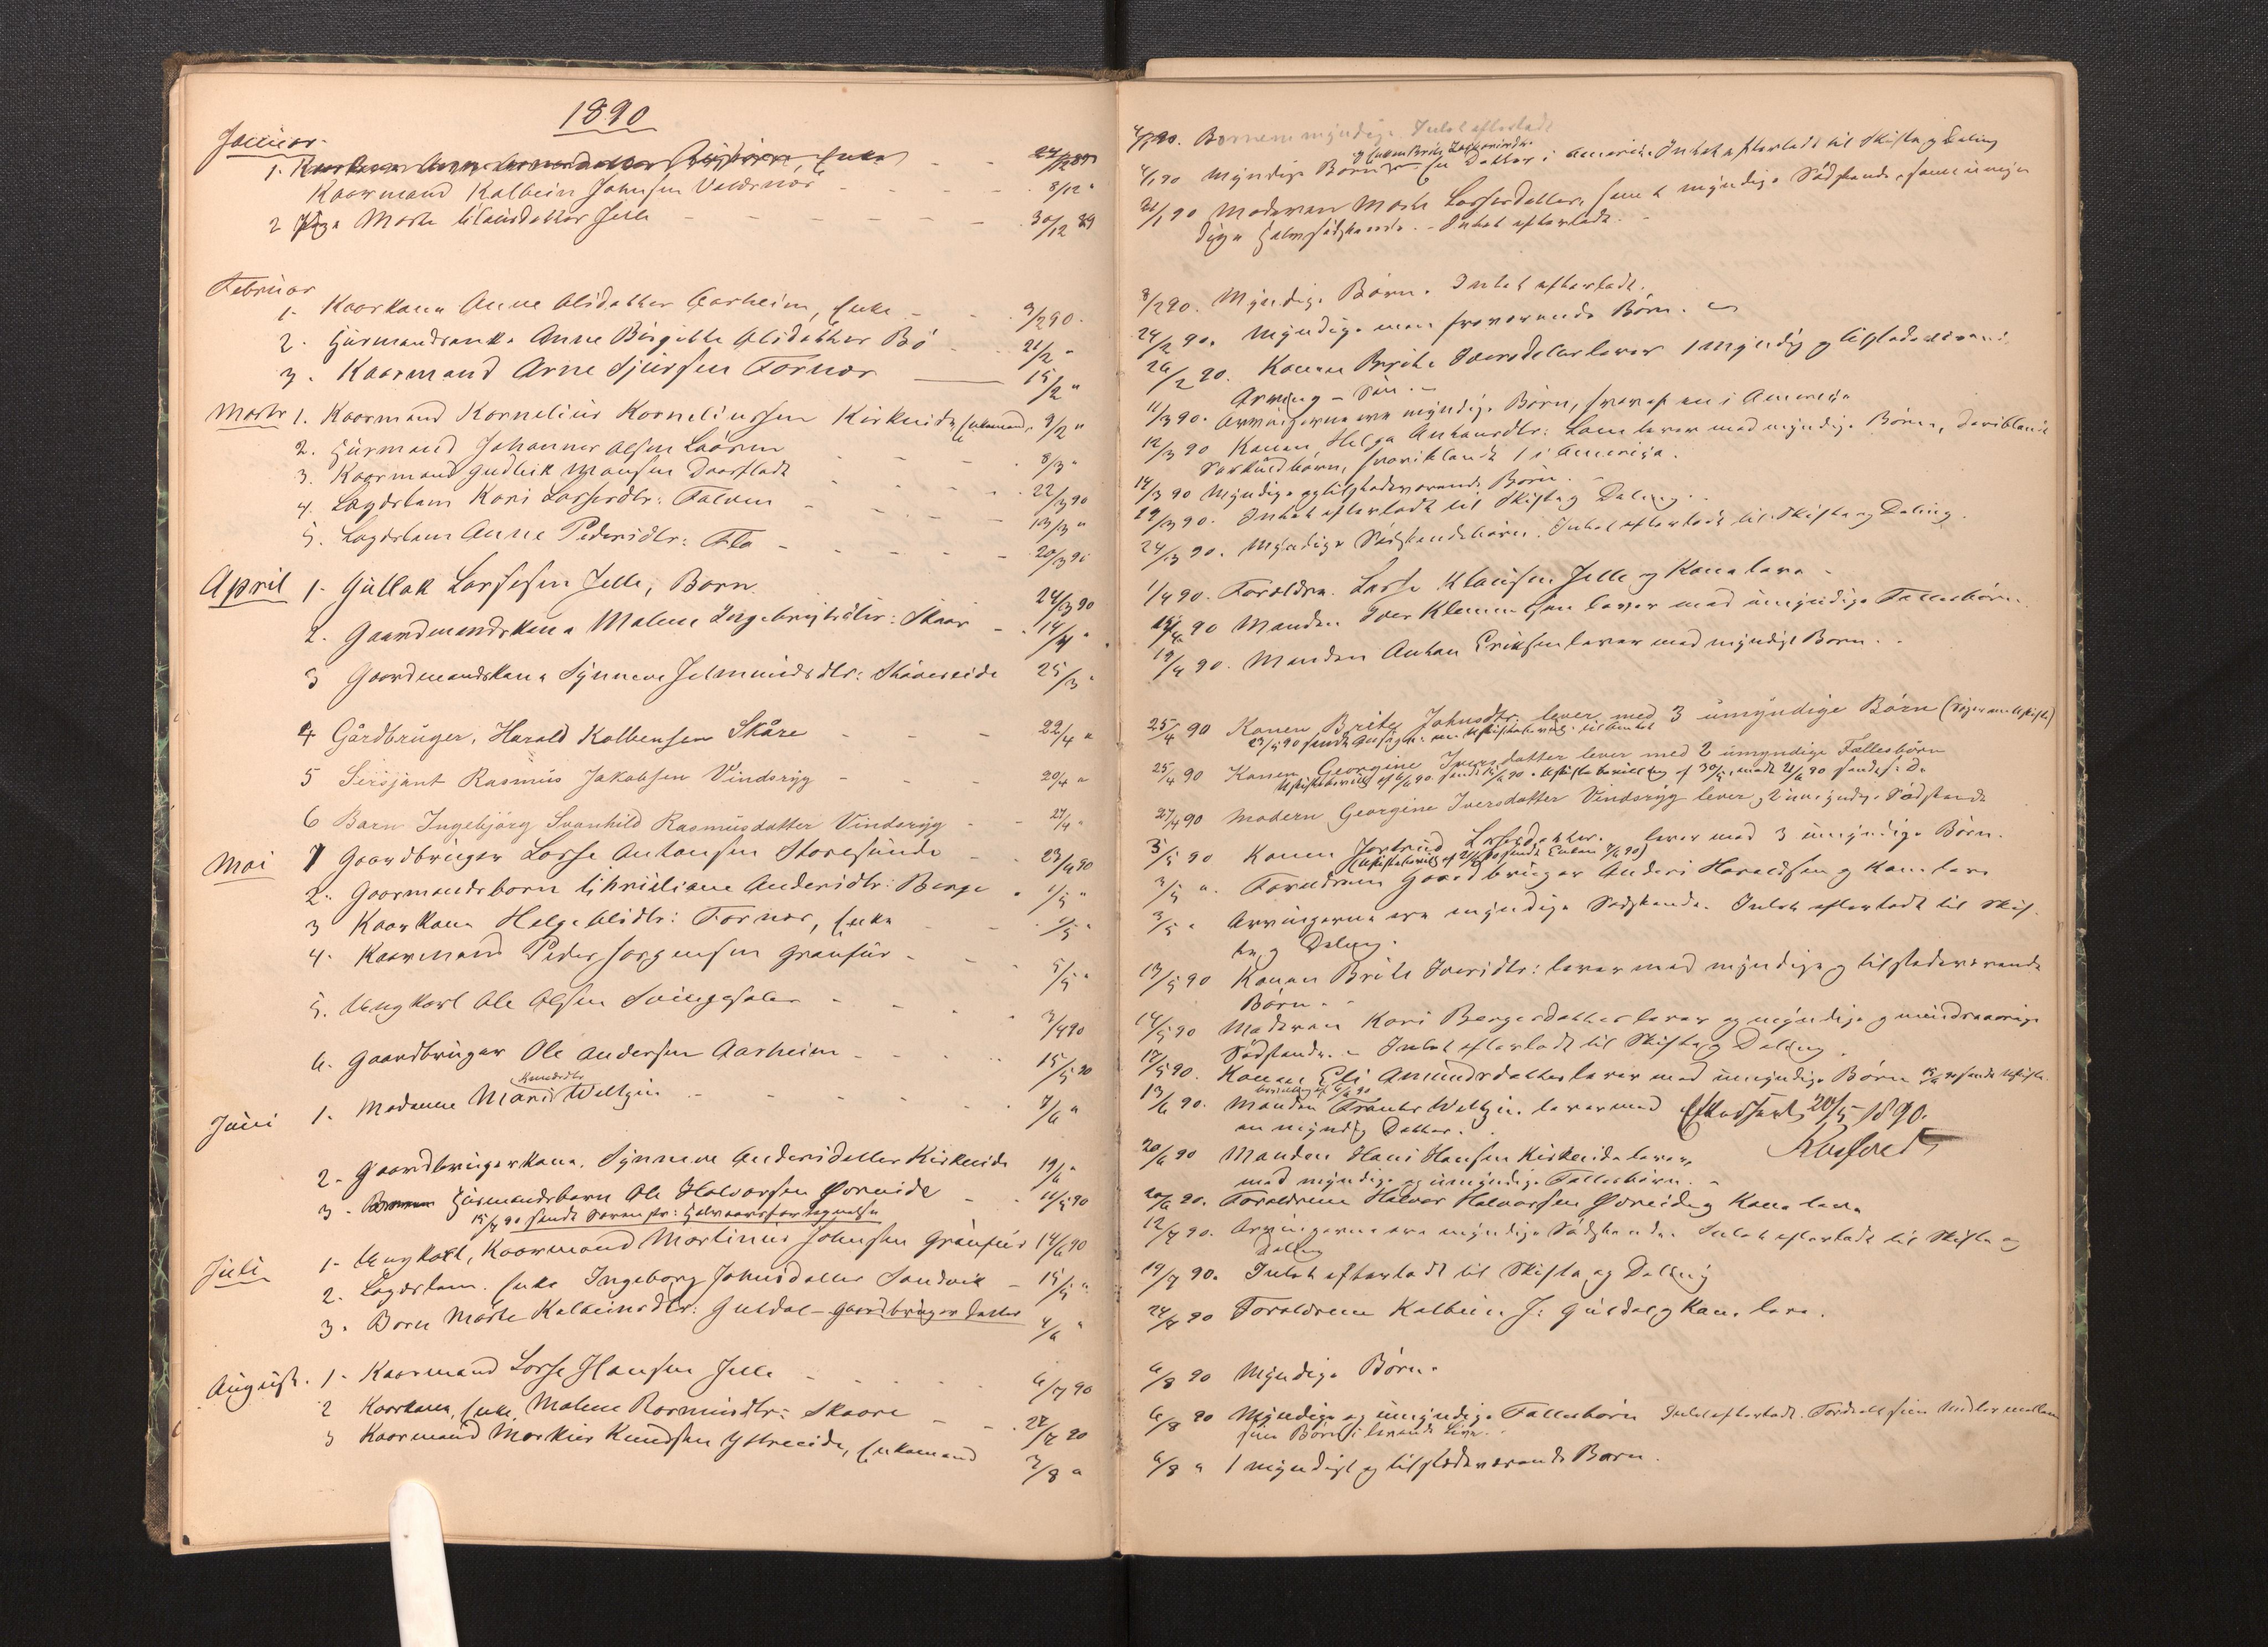 1890
Januar.
1. Enke 24/12 89
Kaarmand Kolbein Johnsen Valdrnæs 8/12 "
2 Pige Marte Clausdatter Jelle 30/12 89
Februar
1. Kaarkone Anne Olsdatter Aarheim, Enke 3/2 90.
2. Husmandsenke Anne Birgitte Olsdatter Bö 21/2 "
3. Kaarmand Arne Sjursen Fornæs 15/2 "
Marts 1. Kaarmand Kornelius Korneliussen Kirkeide, Enkemand 9/2 "
2. Husmand Johannes Olsen 8/3 "
3. Kaarmand Gudleik Monsen 22/3 90
4. Lægdslem Kari Lassesdtr: Falven 13/3 "
5. Lægdslem Anne Pedersdtr: Flo 20/3 90
April 1. Gullak Lassesen Jelle, Barn. 24/3 90
2. Gaardmandskone Malene Ingebrigtsdtr: Skaar 14/4 "
3 Gaardmandskone Synneve Jetmundsdtr: Skaareseide 25/3 "
4 Gårdbruger, Harald Kolbensen Skåre 22/4 "
5 Sersjant Rasmus Jakobsen Vindsryg 20/4 "
6 Barn Ingebjörg Svanhild Rasmusdatter Vindsryg 27/4 "
Mai 1 Gaardbruger Lasse Antonsen Storesunde 23/4 90
2. Gaarmandsbarn Christiane Andersdtr: Berge 1/5 "
3 Kaarkone Helge Olsdtr: Fornæs, Enke 1/5 "
4. Kaarmand Peder Jørgensen Grønfur 5/5 "
5. Ungkarl Ole Olsen 3/4 90
6. Gaardbruger Ole Andersen Aarheim 15/5 90
Knudsdtr
Juni 1. Madamme Maris Weltzin 7/6 "
2. Gaardbrugerkone, Synneve Andersdatter Kirkeide 19/6 "
3. Husmandsbarn Ole Halvorsen Øvreide 11/5 90
15/7 90 sendt
Juli 1. Ungkarl, Kaarmand Martinus Johnsen Grønfur 14/6 90
2. Lægdslem. Enke Ingeborg Johnsdatter Sandvik 15/5 "
3. Barn Marte Kolbeinsdtr: Guldal - Gaardbruger datter 4/6 "
August. 1. Kaarmand Lasse Hansen Jelle 6/7 90
2 Kaarkone, Enke, Malene Rasmusdtr: Skaare 28/7 90
3 Kaarmand Markus Knudsen Ystreeide, Enkemand 3/8 "
4/1 90. Børnene myndige. Intet efterladt
4/1 90 Myndige Børn en Datter i Amerika Intet efterladt til Skifte og Deling
21/1 90 Moderen Marte Lassesdatter, samt myndige Södskende, samt umyn
dige Halvsödskende. - Intet efterladt. -
8/2 90. Myndige Børn. Intet efterladt.
24/2 90. Myndige men fraværende Børn.
26/2 90. Konen Brithe Iversdatter lever 1 myndig og tilstedeværende
Arving - Søn.
11/3 90. Arvingerne ere myndige Børn, hvoraf en i Amerika
12/3 90 Konen Helga Antonsdtr: Lem lever med myndige Børn, deriblandt
Særkuldbörn, hvoriblandt 1 i Amerika.
14/3 90 Myndige og tilstedeværende Børn.
19/3 90. Intet efterladt til Skifte og Deling.
24/3 90. Myndige Södskendebörn. Intet efterladt til Skifte og Deling.
1/4 90. Forældre. Lasse Klausen Jelle og Kone leve
90 Manden Iver Klemmetsen lever med umyndige Fællesbörn
19/4 90. Manden Anton Eriksen lever med myndigt Barn.
25/4 90 Konen Brite Johnsdtr. lever med 3 umyndige Börn
25/4 90 Konen Georgine Iversdatter lever med 2 umyndige Fællesbörn
27/4 90 Modern Georgine Iversdatter Vindsryg lever, umyndige Södskende
3/5 90 Konen Jertrud Larsesdatter lever med 3 umyndige Børn.
3/5 ". Forældrene Gaardbruger Anders Haraldsen og Kone leve
3/5 " Arvingerne ere myndige Södskende. Intet efterladt til Skif-
te og Deling.
13/5 90 Konen Brite Iversdtr: lever med myndige og tilstedeværende
Børn.
14/5 90 Moderen Kari Bergesdatter lever og myndige og mindreaarige
Södskende. - Intet efterladt til Skifte og Deling.
17/5 90. Konen Eli Amundsdatter lever med umyndige Börn
13/6 90. Manden Frants Weltzin lever med
en myndig Datter.
Efterseet 20/5 1890.
20/6 90 Manden Hans Hansen Kirkeide lever,
med myndige og umyndige Fællesbörn.
20/6 90. Forældrene Halvor Halvorsen Øvreide og Kone leve
12/7 90. Arvingerne ere myndige Södskende. Intet efterladt til Skifte og
Deling
19/7 90. Intet efterladt til Skifte og Deling
24/7 90 Forældrene Kolbein J: Guldal og Kone leve.
6/8 90 Myndige Børn.
6/8 90 Myndige og umyndige Fællesbörn Intet efterladt. Fordelt sine Midler mellem
sine Børn i levende Live.
6/8 " 1 myndigt og tilstedeværende Barn.